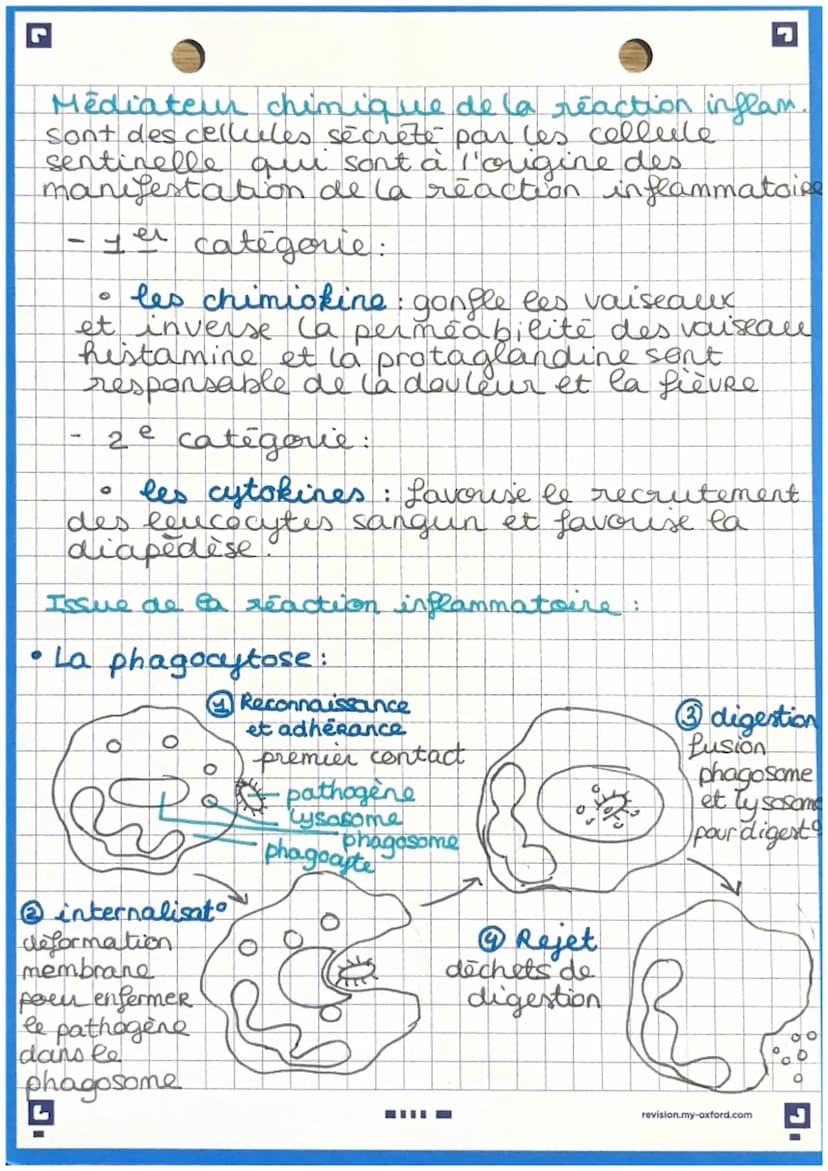 Médiateur chimique de la réaction inflam.
sont des cellules sécrété par les cellule
sentinelle qui sont à l'origine des
manifestation de la réaction inflammatoire
- 1er catégorie :
• les chimiokine : gonfle les vaiseaux
et inverse la perméabilité des vaiseau
histamine et la protaglandine sont
responsable de la douleur et la fièvre
- 2e catégorie :
• les cytokines : favorise le recrutement
des leucocytes sangun et favorise la
diapédèse.
Issue de la réaction inflammatoire :
• La phagocytose :
① Reconnaissance
et adhérance
premier contact
pathogène
lysosome
phagosome
phagocyte
② internalisat°
déformation
membrane
pour enfermer
le pathogène
dans le
phagosome
③ digestion
fusion
phagosome
et lysosome
pour digest°
④ Rejet
déchets de
digestion
revision.my-oxford.com